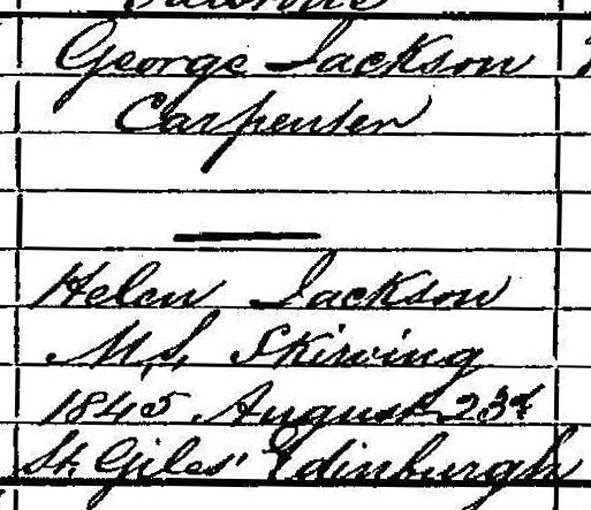 George Jackson
Carpenter
Helen Jackson
M.S. Skirving
1845 August 23d
St. Giles' Edinburgh